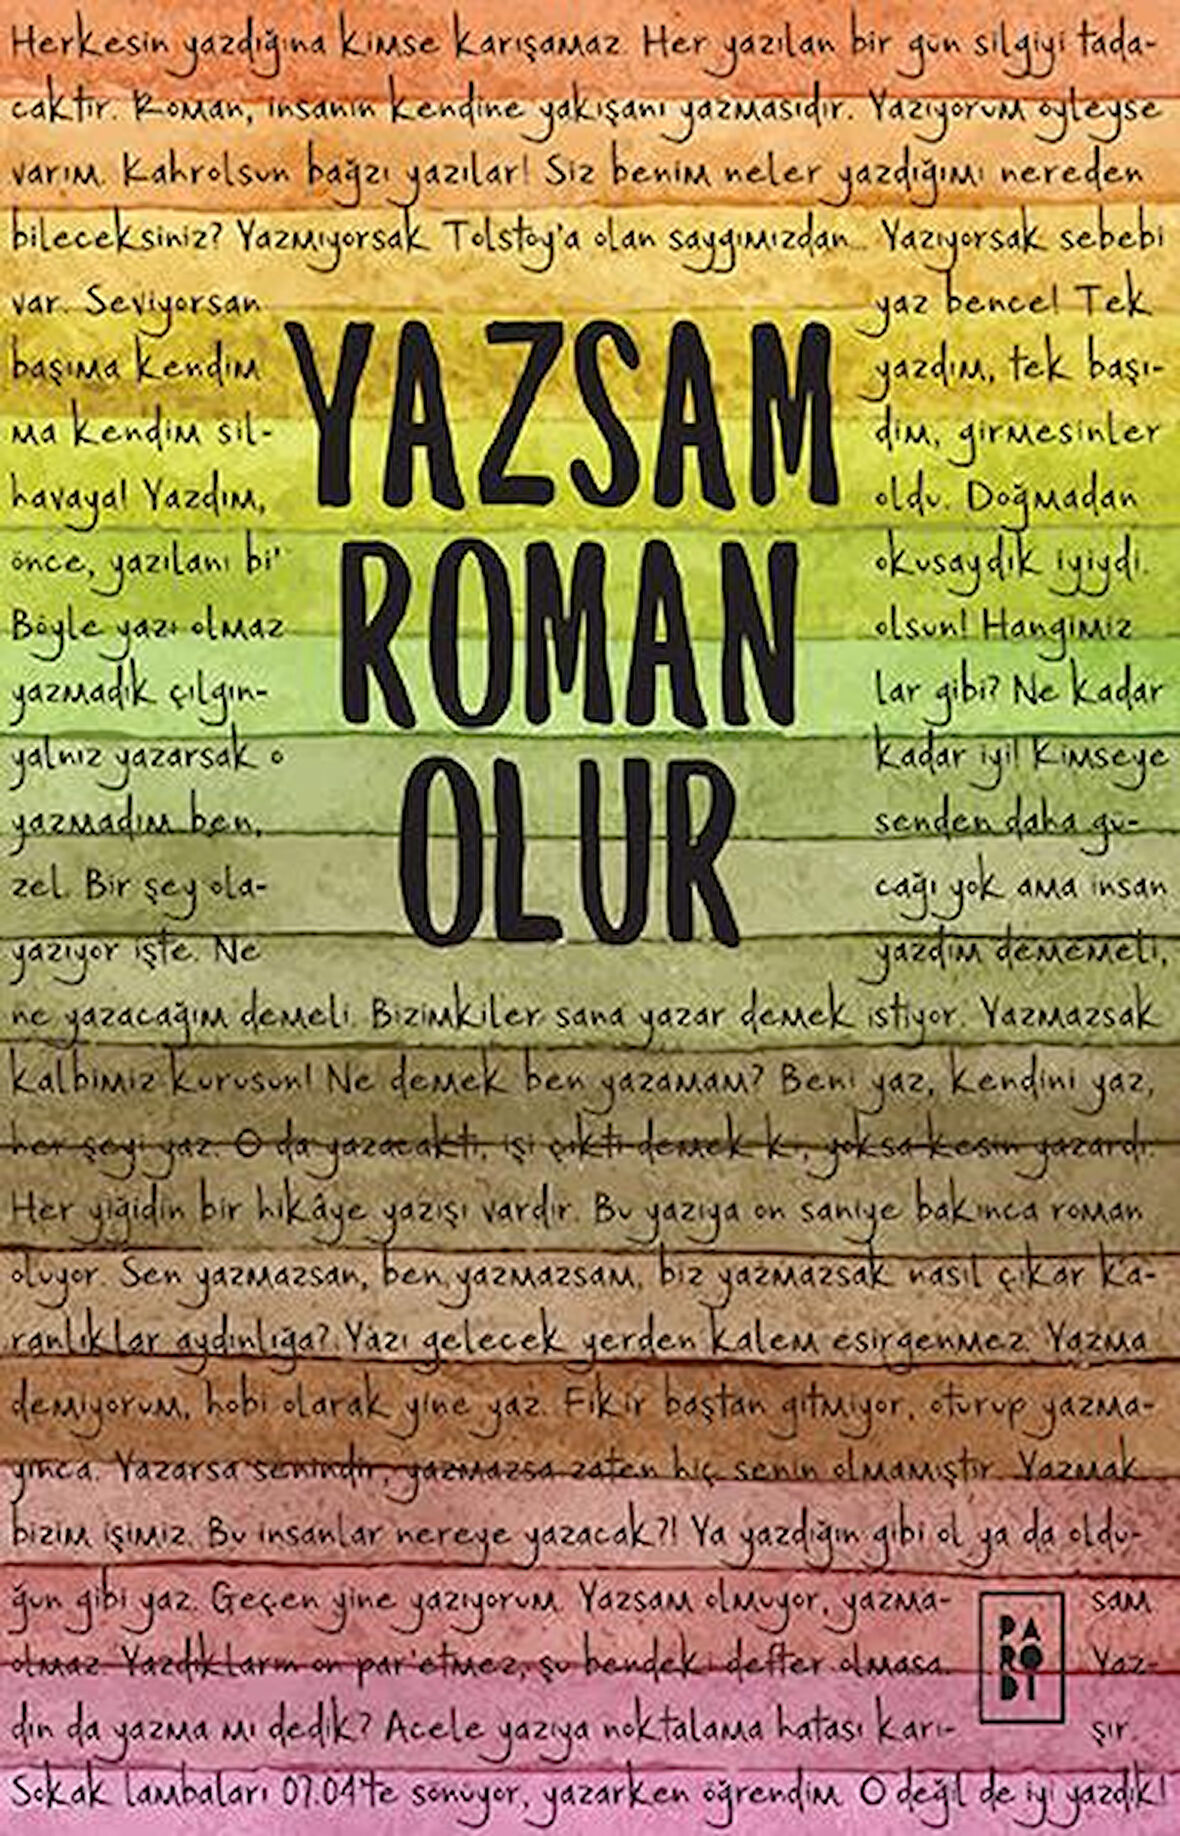 Herkesin yazdığına kimse karışamaz. Her yazılan bir gün silgiyi tada-
caktır. Roman, insanın kendine yakışanı yazmasıdır. Yazıyorum öyleyse
varım. Kahrolsun bağzı yazılar! Siz benim neler yazdığımı nereden
bileceksiniz? Yazmıyorsak Tolstoy'a olan saygımızdan... Yazıyorsak sebebi
var. Seviyorsan yaz bence! Tek
başıma kendim yazdım, tek başı-
ma kendim sil- dim, girmesinler
havaya! Yazdım, oldu. Doğmadan
önce, yazılanı bi' okusaydık iyiydi.
Böyle yazı olmaz olsun! Hangimiz
yazmadık çılgın- lar gibi? Ne kadar
yalnız yazarsak o kadar iyi! Kimseye
yazmadım ben, senden daha gü-
zel. Bir şey ola- cağı yok ama insan
yazıyor işte. Ne yazdım dememeli,
ne yazacağım demeli. Bizimkiler sana yazar demek istiyor. Yazmazsak
kalbimiz kurusun! Ne demek ben yazamam? Beni yaz, kendini yaz,
her şeyi yaz. O da yazacaktı, işi çıktı demek ki, yoksa kesin yazardı.
Her yiğidin bir hikâye yazışı vardır. Bu yazıya on saniye bakınca roman
oluyor. Sen yazmazsan, ben yazmazsam, biz yazmazsak nasıl çıkar ka-
ranlıklar aydınlığa? Yazı gelecek yerden kalem esirgenmez. Yazma
demiyorum, hobi olarak yine yaz. Fikir baştan gitmiyor, oturup yazma-
yınca. Yazarsa senindir, yazmazsa zaten hiç senin olmamıştır. Yazmak
bizim işimiz. Bu insanlar nereye yazacak?! Ya yazdığın gibi ol ya da oldu-
ğun gibi yaz. Geçen yine yazıyorum. Yazsam olmuyor, yazma- sam
olmaz. Yazdıkların on par'etmez, şu bendeki defter olmasa. Yaz-
dın da yazma mı dedik? Acele yazıya noktalama hatası karı- şır.
Sokak lambaları 07.04'te sönüyor, yazarken öğrendim. O değil de iyi yazdık!
YAZSAM
ROMAN
OLUR
PA
RO
DI